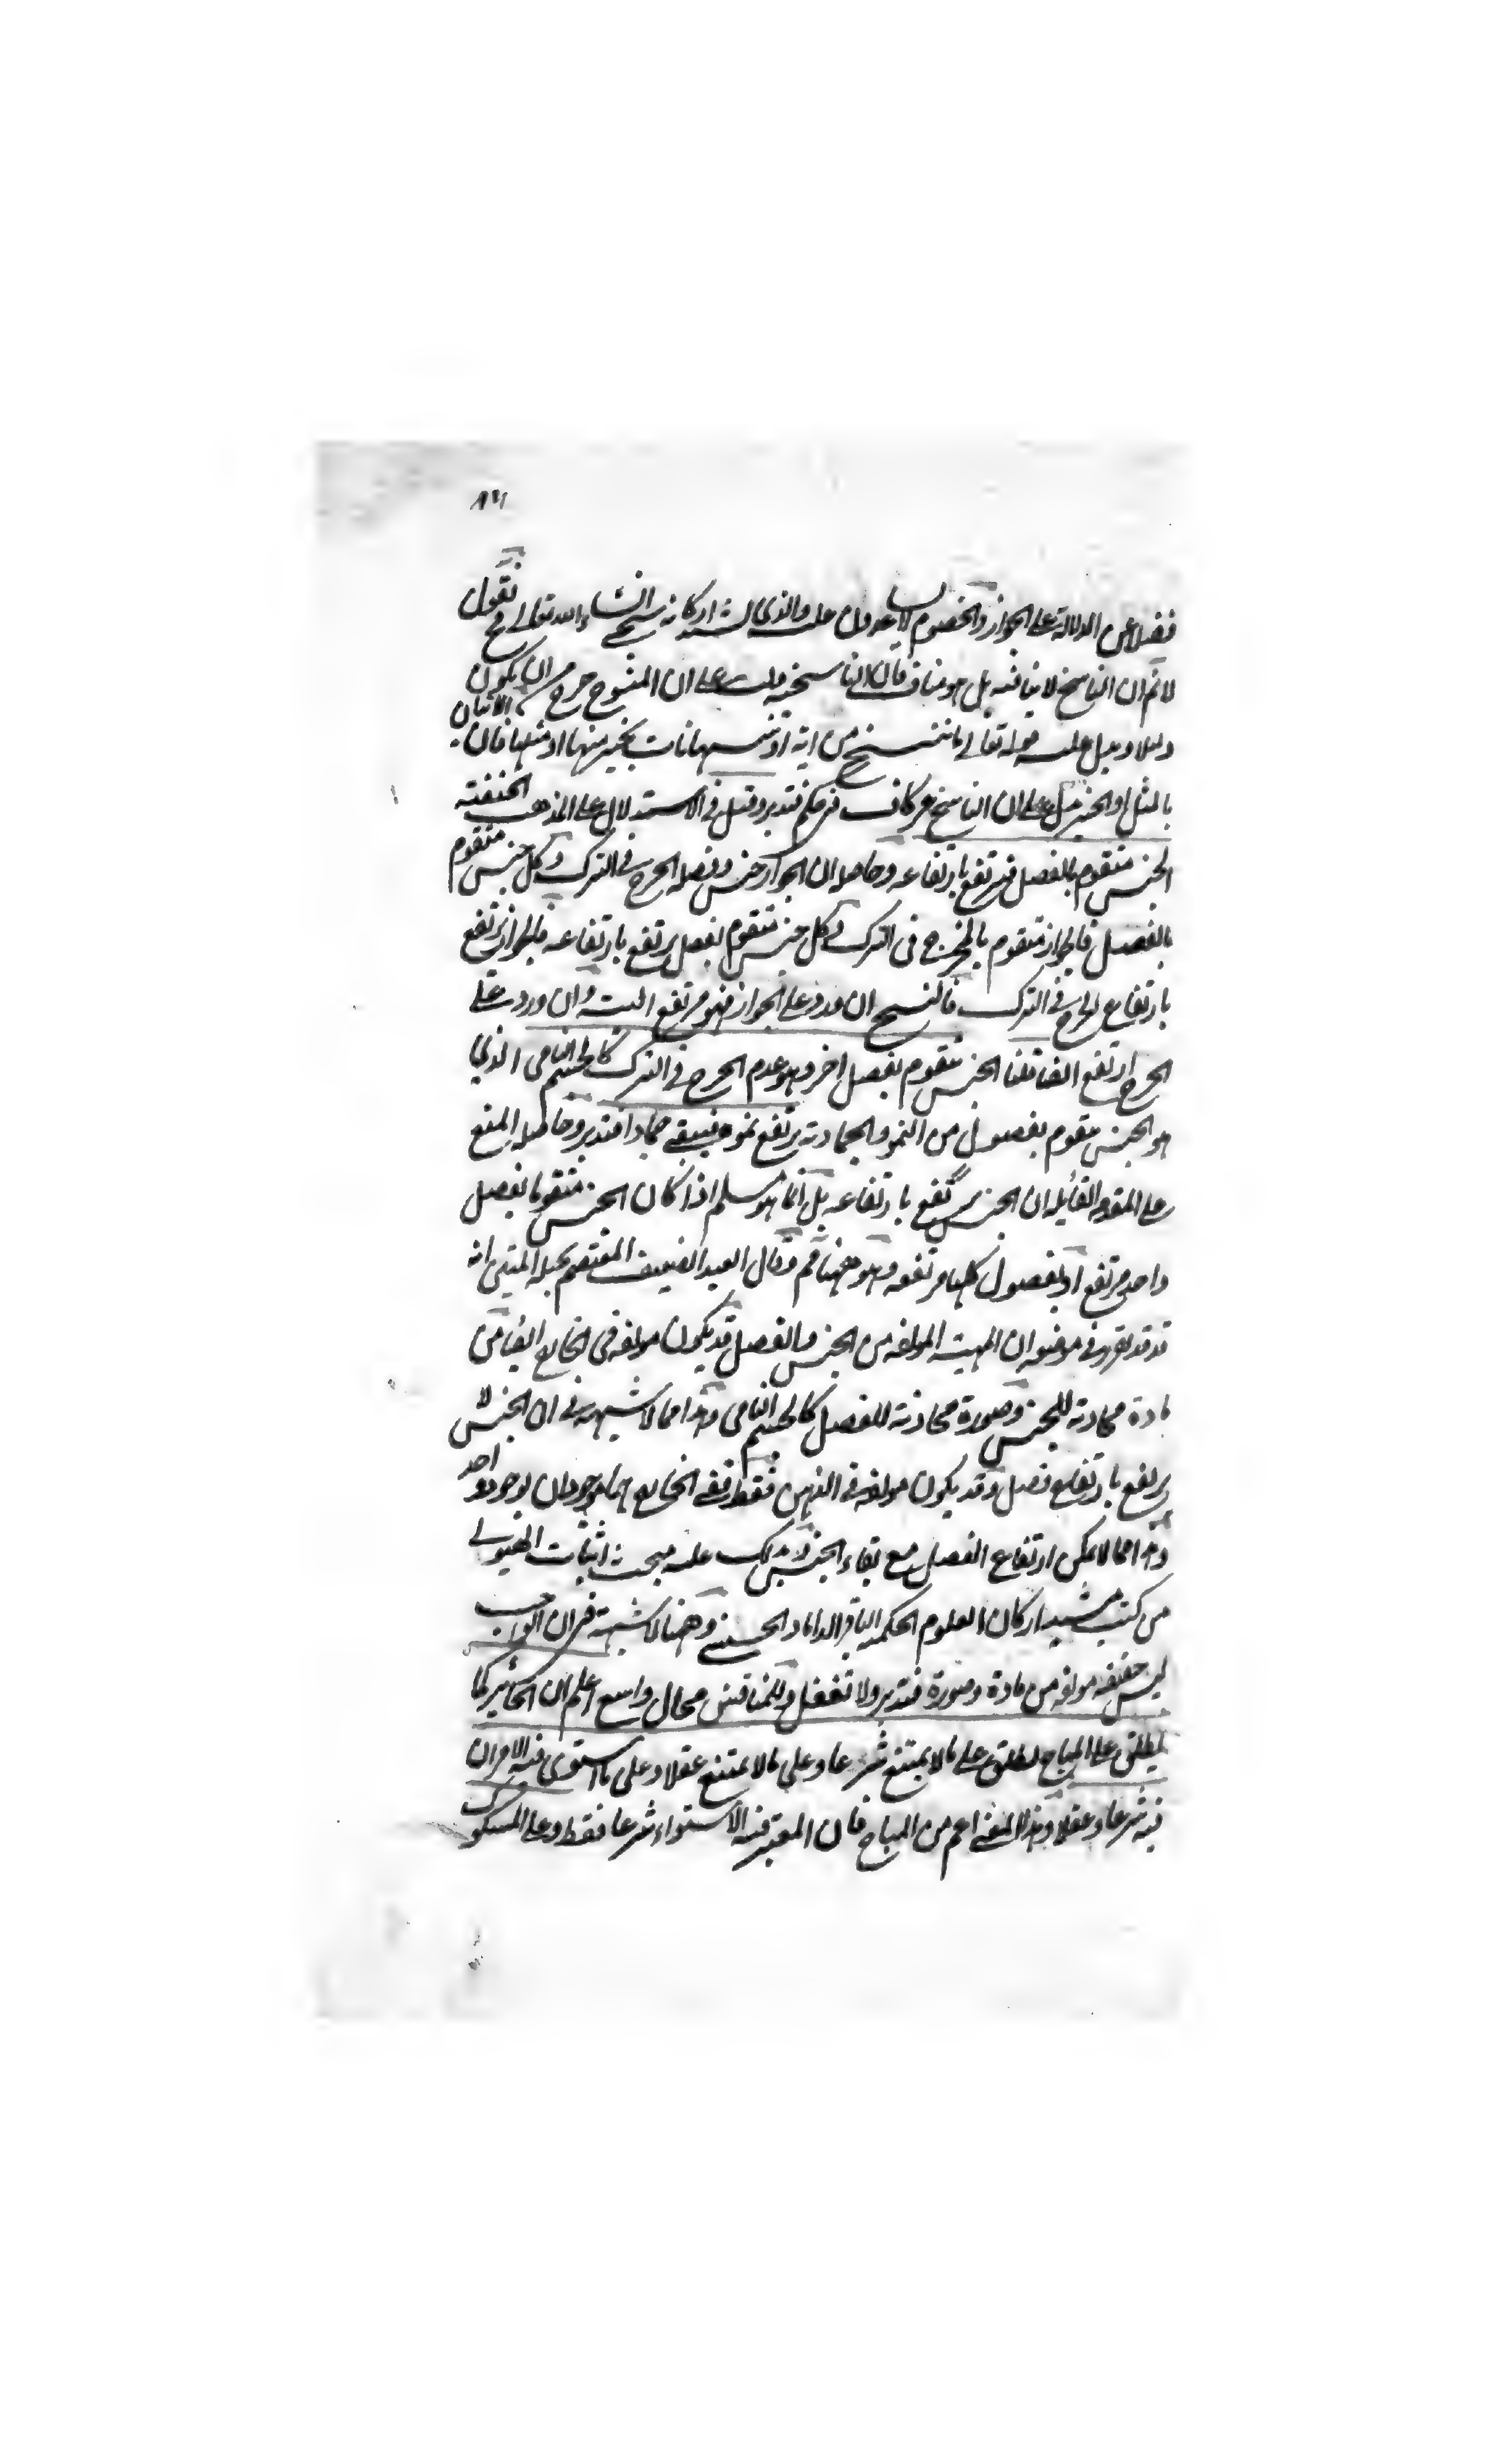 فضلا عن الدلالة على الجواز والخصوم لا يعدون عليه والذي اركانه سيجئ انشاء الله تعالى ثم نقول
لا نم ان الناسخ لا ينافيه بل هو مناف فان الناسخية دلت على ان المنسوخ خرج ان يكون
دليلا ويدل عليه قوله تعالى ما ننسخ من اية او ننسها نات بخير منها او مثلها فان الاتيان
بالمثل او الخير يدل على ان الناسخ فتدبر وقيل في الاستدلال على المذهب الحنفية
الجنس متقوم بالفصل فيرتفع بارتفاعه وحاصله ان الجواز جنس وفصله الحرج في الترك وكل جنس متقوم
بالفصل فالجواز متقوم بالحرج في الترك وكل جنس متقوم بفصل يرتفع بارتفاعه فالجواز يرتفع
بارتفاع الحرج في الترك فالنسخ ان ورد على الجواز فهو مرتفع البتة وان ورد على
الحرج ارتفع ايضا قلنا الجنس متقوم بفصل اخر وهو عدم الحرج في الترك كالجسم النامي الذي
هو الجنس متقوم بفصول من النمو والجمادية يرتفع نموه فيبقى جمادا فتدبر وحاصله المنع
على المقدمة القائلة ان الجنس يرتفع بارتفاعه بل انما هو مسلم اذا كان الجنس متقوما بفصل
واحد مرتفع او بفصول كلها مرتفعة وهو ههنا مم وقال العبد الضعيف المعتصم بحبله المتين انه
قد تقرر في موضعه ان المهية المؤلفة من الجنس والفصل قد يكون مولفة في الخارج ايضا من
مادة محاذية للجنس وصورة محاذية للفصل كالجسم النامي وهذا مما لا شبهة في ان الجنس لا
يرتفع بارتفاع فصل وقد يكون مولفة في الذهن فقط ففي الخارج هما موجودان بوجود واحد
وهذا مما لا يمكن ارتفاع الفصل مع بقاء الجنس عليه مبحث اثبات الهيولى
من كتب مشيد اركان العلوم الحكمية الباقر الداماد الحسيني وههنا لا شبهة في ان الواجب
ليس حقيقة مولفة من مادة وصورة فتدبر ولا تغفل وللمناقش مجال واسع اعلم ان الجائز كما
يطلق على المباح يطلق على ما لا يمتنع شرعا وعلى ما لا يمتنع عقلا وعلى ما استوى فيه الامران
فيه شرعا وعقلا وهذا المعنى اعم من المباح فان المعتبر فيه الاستواء شرعا فقط وعلى المشكوك